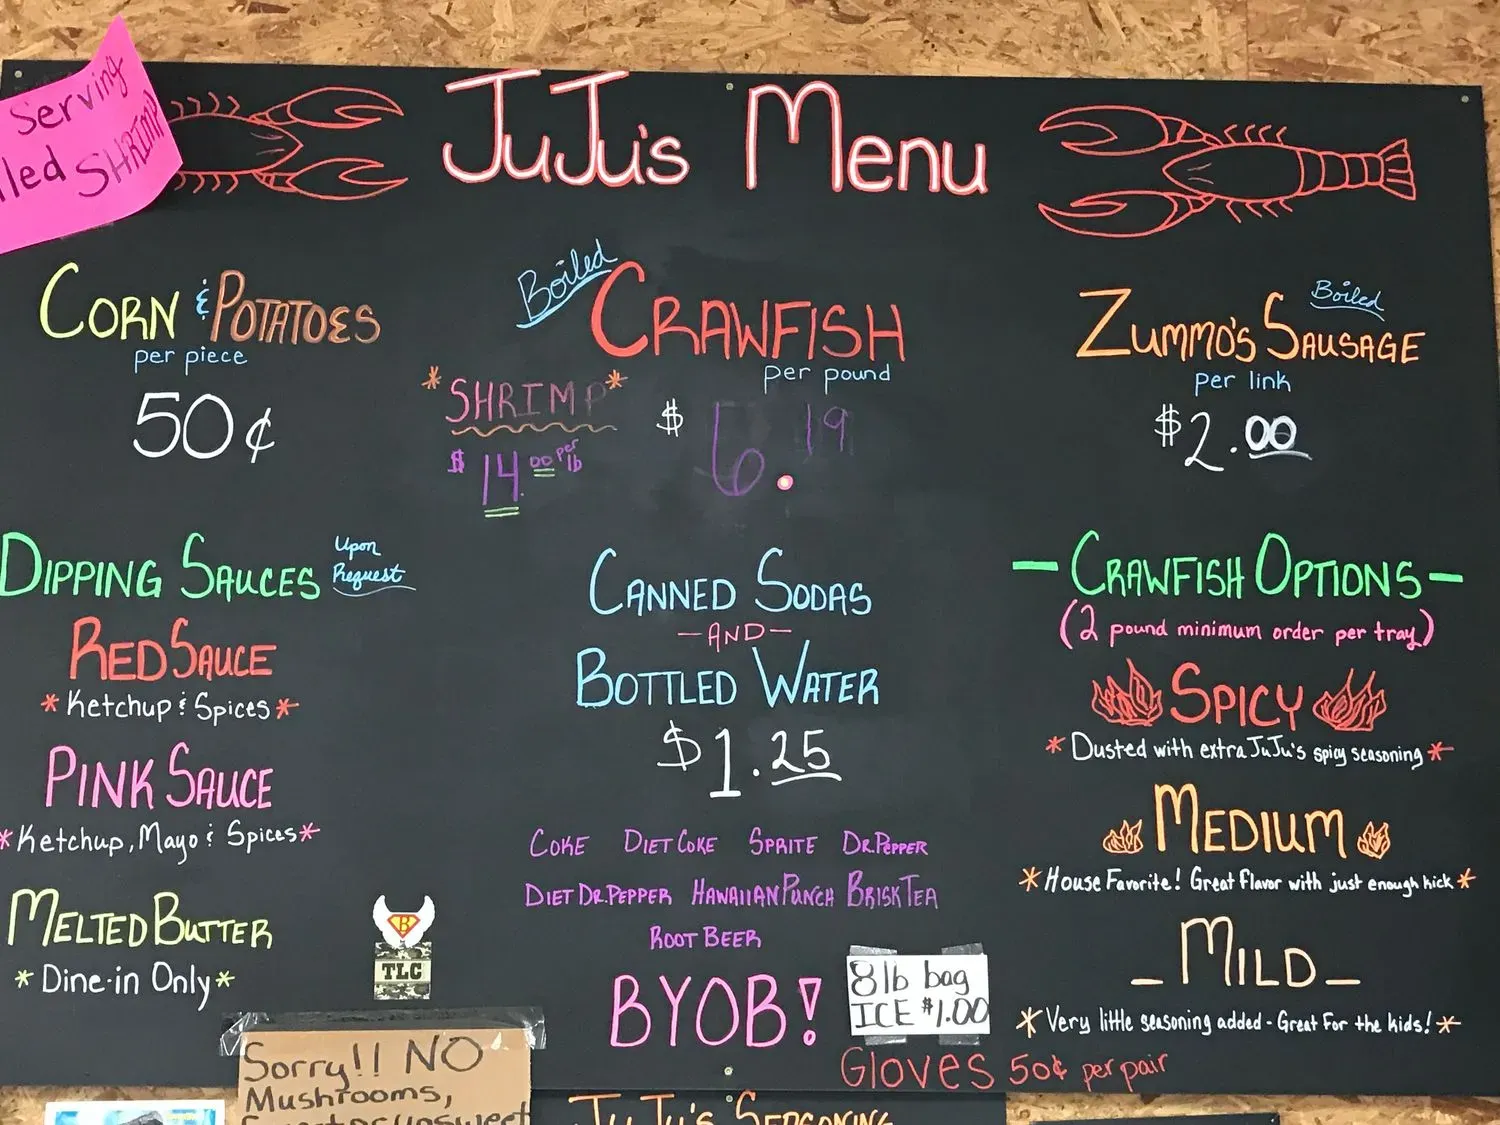 Serving
SHRIMP
JuJu's Menu
CORN & POTATOES
per piece
50¢
Boiled
CRAWFISH
per pound
$ 6.19
*SHRIMP*
$ 14.00 per lb
Boiled
ZUMMO'S SAUSAGE
per link
$2.00
DIPPING SAUCES
Upon
Request
RED SAUCE
*Ketchup & Spices*
PINK SAUCE
*Ketchup, Mayo & Spices*
MELTED BUTTER
*Dine-in Only*
B
TLC
CANNED SODAS
-AND-
BOTTLED WATER
$1.25
COKE DIET COKE SPRITE DR. PEPPER
DIET DR. PEPPER HAWAIIAN PUNCH BRISK TEA
ROOT BEER
BYOB!
8lb bag
ICE $1.00
GLOVES 50¢ per pair
-CRAWFISH OPTIONS-
(2 pound minimum order per tray)
SPICY
*Dusted with extra JuJu's spicy seasoning*
MEDIUM
*House Favorite! Great flavor with just enough kick*
_MILD_
*Very little seasoning added - Great For the kids!*
Sorry!! NO
Mushrooms,
JuJu's SEASONING